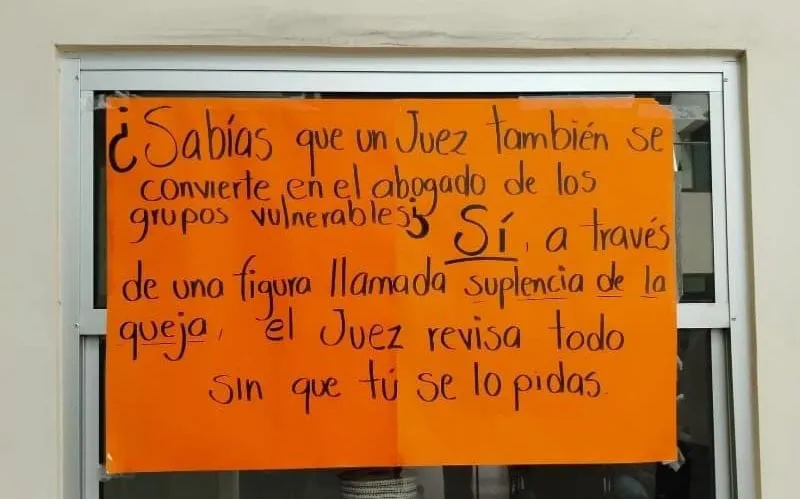 ¿Sabías que un Juez también se
convierte en el abogado de los
grupos vulnerables? Sí, a través
de una figura llamada suplencia de la
queja, el Juez revisa todo
sin que tú se lo pidas.